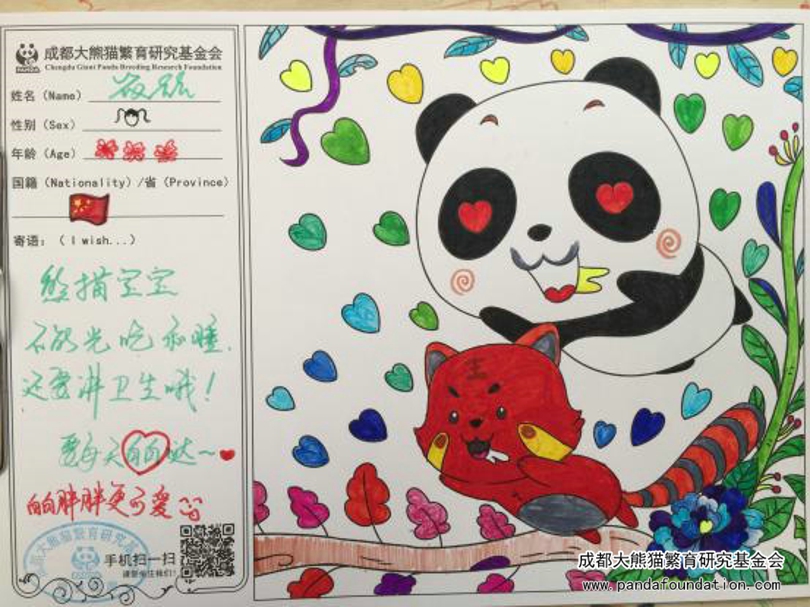 成都大熊猫繁育研究基金会
Chengdu Giant Panda Breeding Research Foundation
姓名（Name）
性别（Sex）
年龄（Age）
国籍（Nationality）/省（Province）
寄语：（I wish...）
熊描宝宝
不能光吃和睡，
还要讲卫生哦！
要每天白白哒～
白白胖胖更可爱
手机扫一扫
王
成都大熊猫繁育研究基金会
www.pandafoundation.com